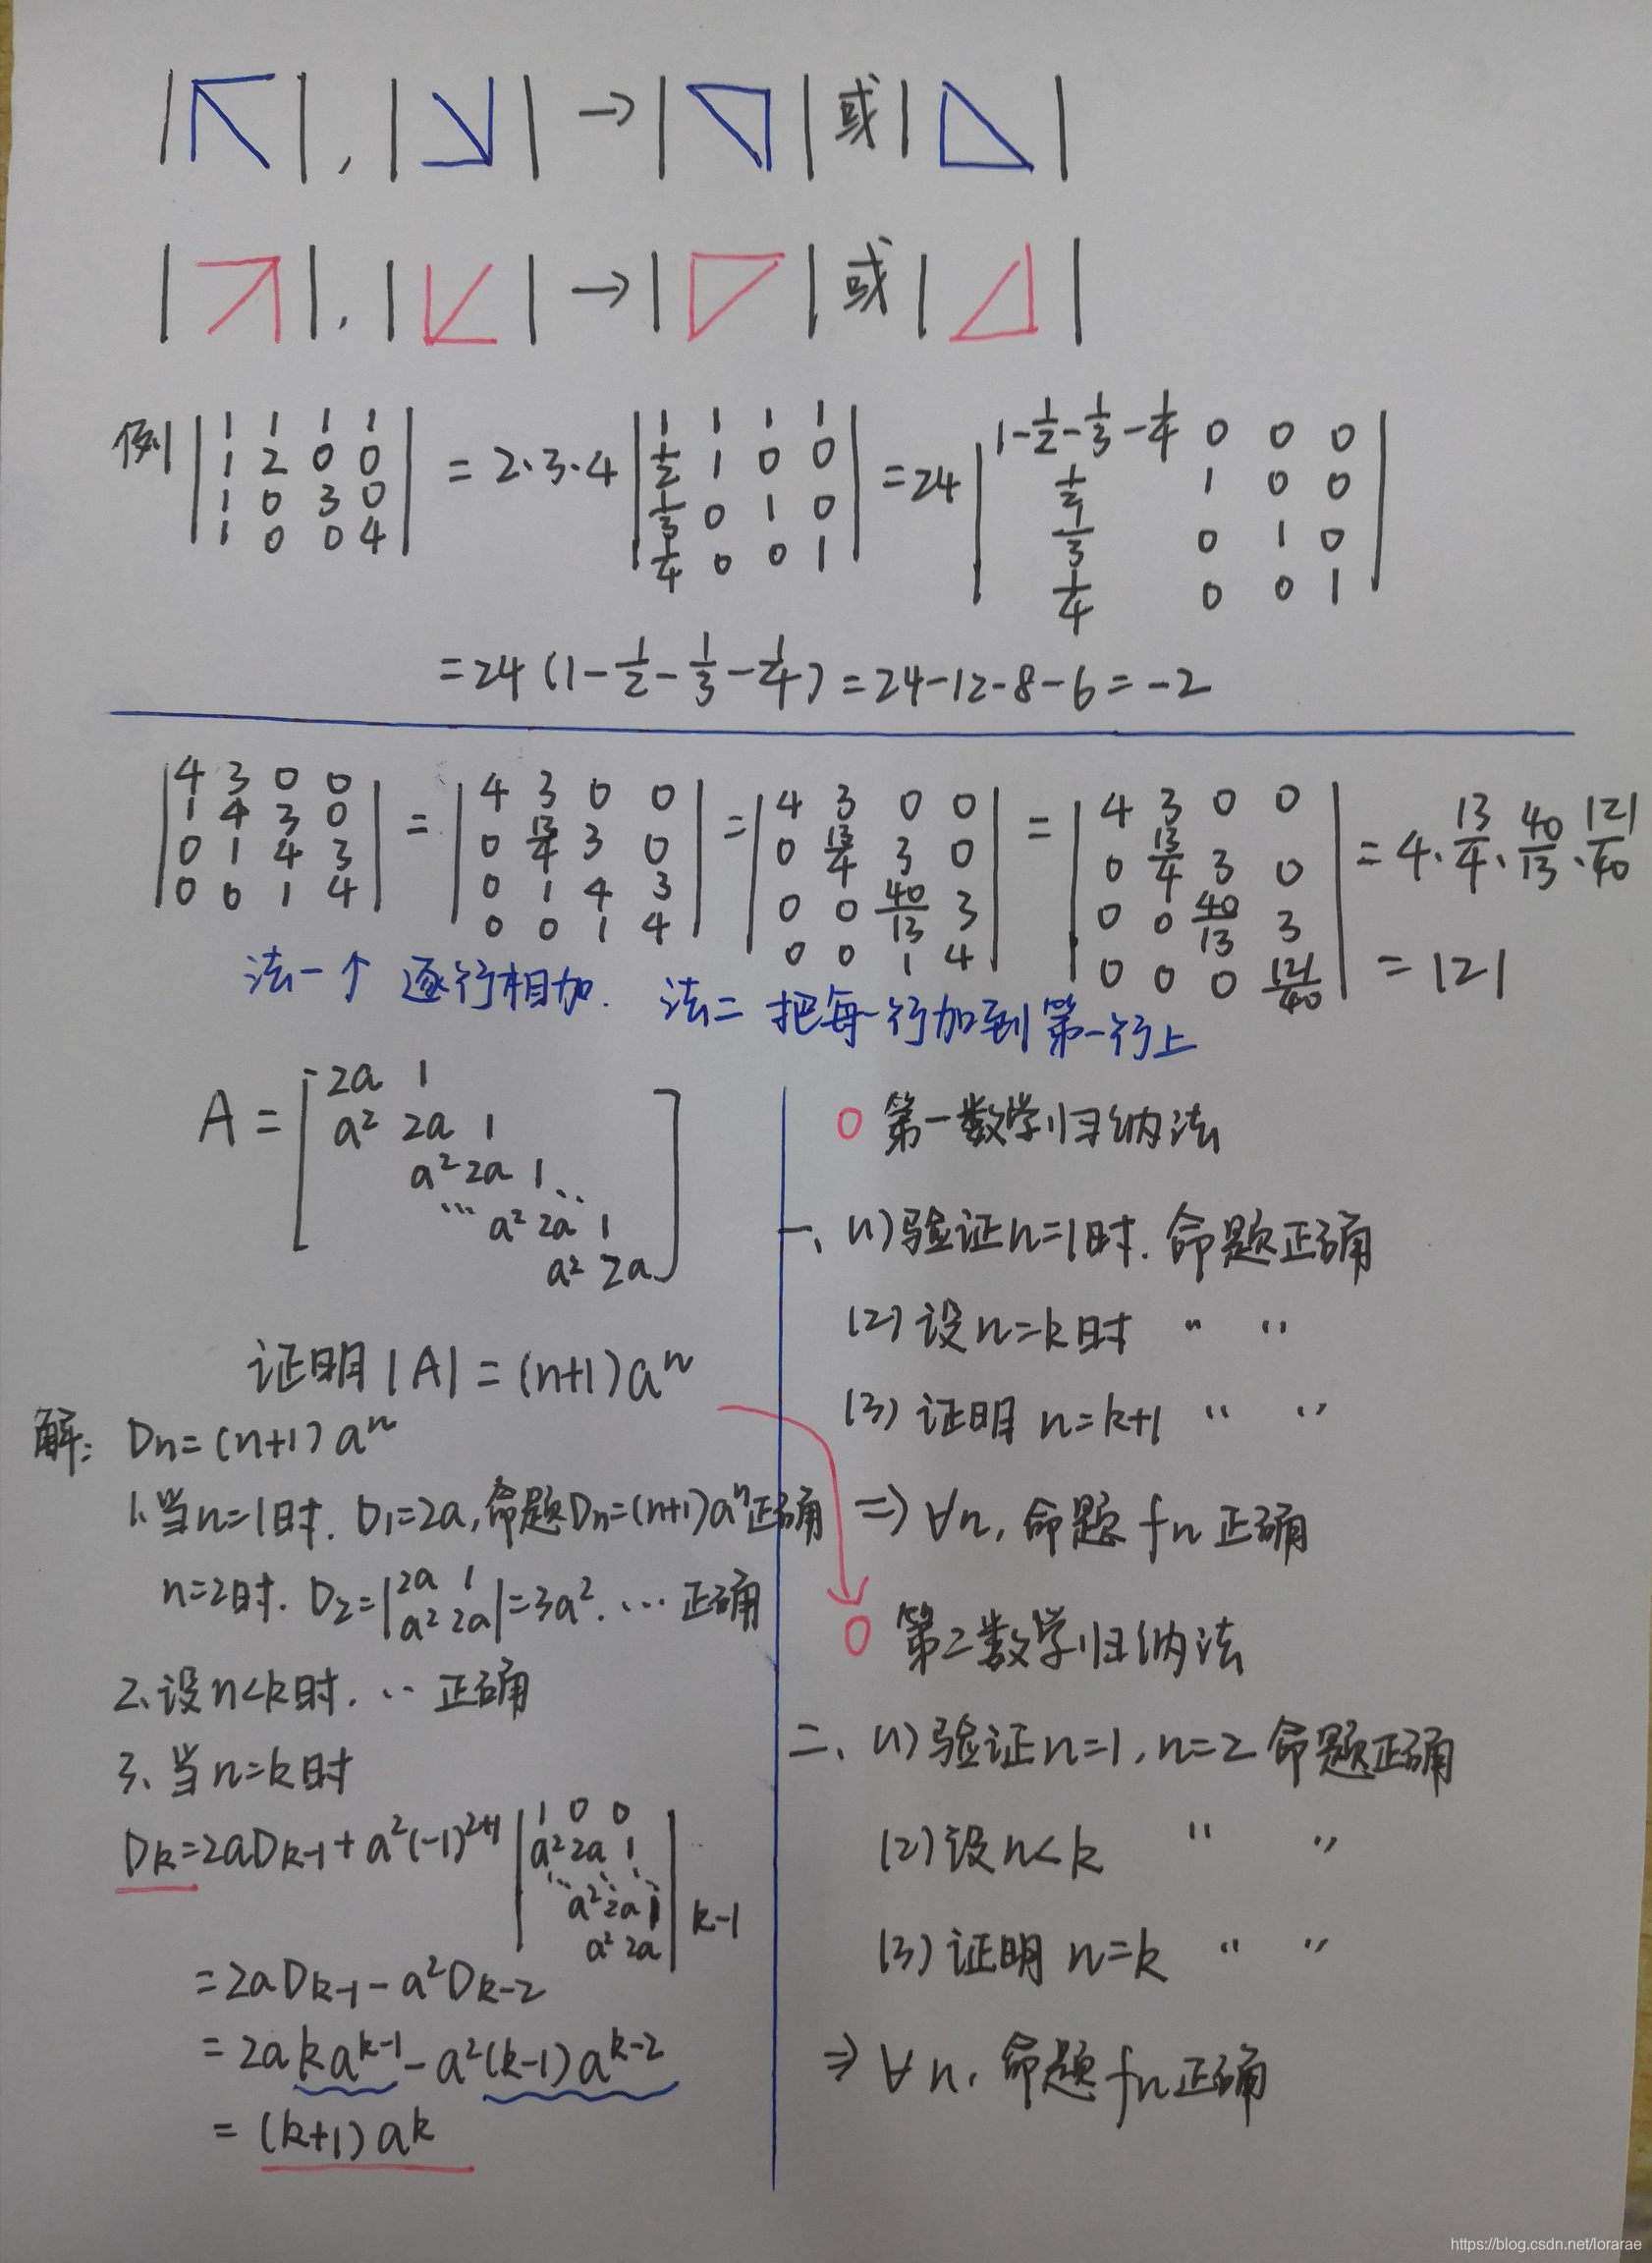 | |, | | → | | 或 | |
| |, | | → | | 或 | |
例 |1 1 1 1; 1 2 0 0; 1 0 3 0; 1 0 0 4| = 2·3·4 |1 1 1 1; 1/2 1 0 0; 1/3 0 1 0; 1/4 0 0 1| = 24 |1-1/2-1/3-1/4 0 0 0; 1/2 1 0 0; 1/3 0 1 0; 1/4 0 0 1|
= 24 (1-1/2-1/3-1/4) = 24-12-8-6 = -2
|4 3 0 0; 1 4 3 0; 0 1 4 3; 0 0 1 4| = |4 3 0 0; 0 13/4 3 0; 0 1 4 3; 0 0 1 4| = |4 3 0 0; 0 13/4 3 0; 0 0 40/13 3; 0 0 1 4| = |4 3 0 0; 0 13/4 3 0; 0 0 40/13 3; 0 0 0 121/40| = 4·13/4·40/13·121/40
= 121
法一个 逐行相加. 法二 把每一行加到第一行上
A = [2a 1
a² 2a 1
a² 2a 1 ⋱
⋱ a² 2a 1
a² 2a]
证明|A| = (n+1)aⁿ
解: Dn=(n+1)aⁿ
1.当n=1时. D₁=2a,命题Dn=(n+1)aⁿ正确
n=2时. D₂=|2a 1; a² 2a|=3a². … 正确
2、设n<k时. … 正确
3、当n=k时
Dk=2aDk-1+a²(-1)²⁺¹ |1 0 0
a² 2a 1
⋱ ⋱ ⋱
a² 2a 1
a² 2a| k-1
=2aDk-1-a²Dk-2
=2akaᵏ⁻¹-a²(k-1)aᵏ⁻²
=(k+1)aᵏ
○ 第一数学归纳法
一、(1)验证n=1时. 命题正确
(2)设n=k时 〃 〃
(3)证明 n=k+1 〃 〃
⇒ ∀n, 命题fn正确
○ 第二数学归纳法
二、(1)验证n=1,n=2 命题正确
(2)设n<k 〃 〃
(3)证明 n=k 〃 〃
⇒ ∀n, 命题fn正确
https://blog.csdn.net/lorarae